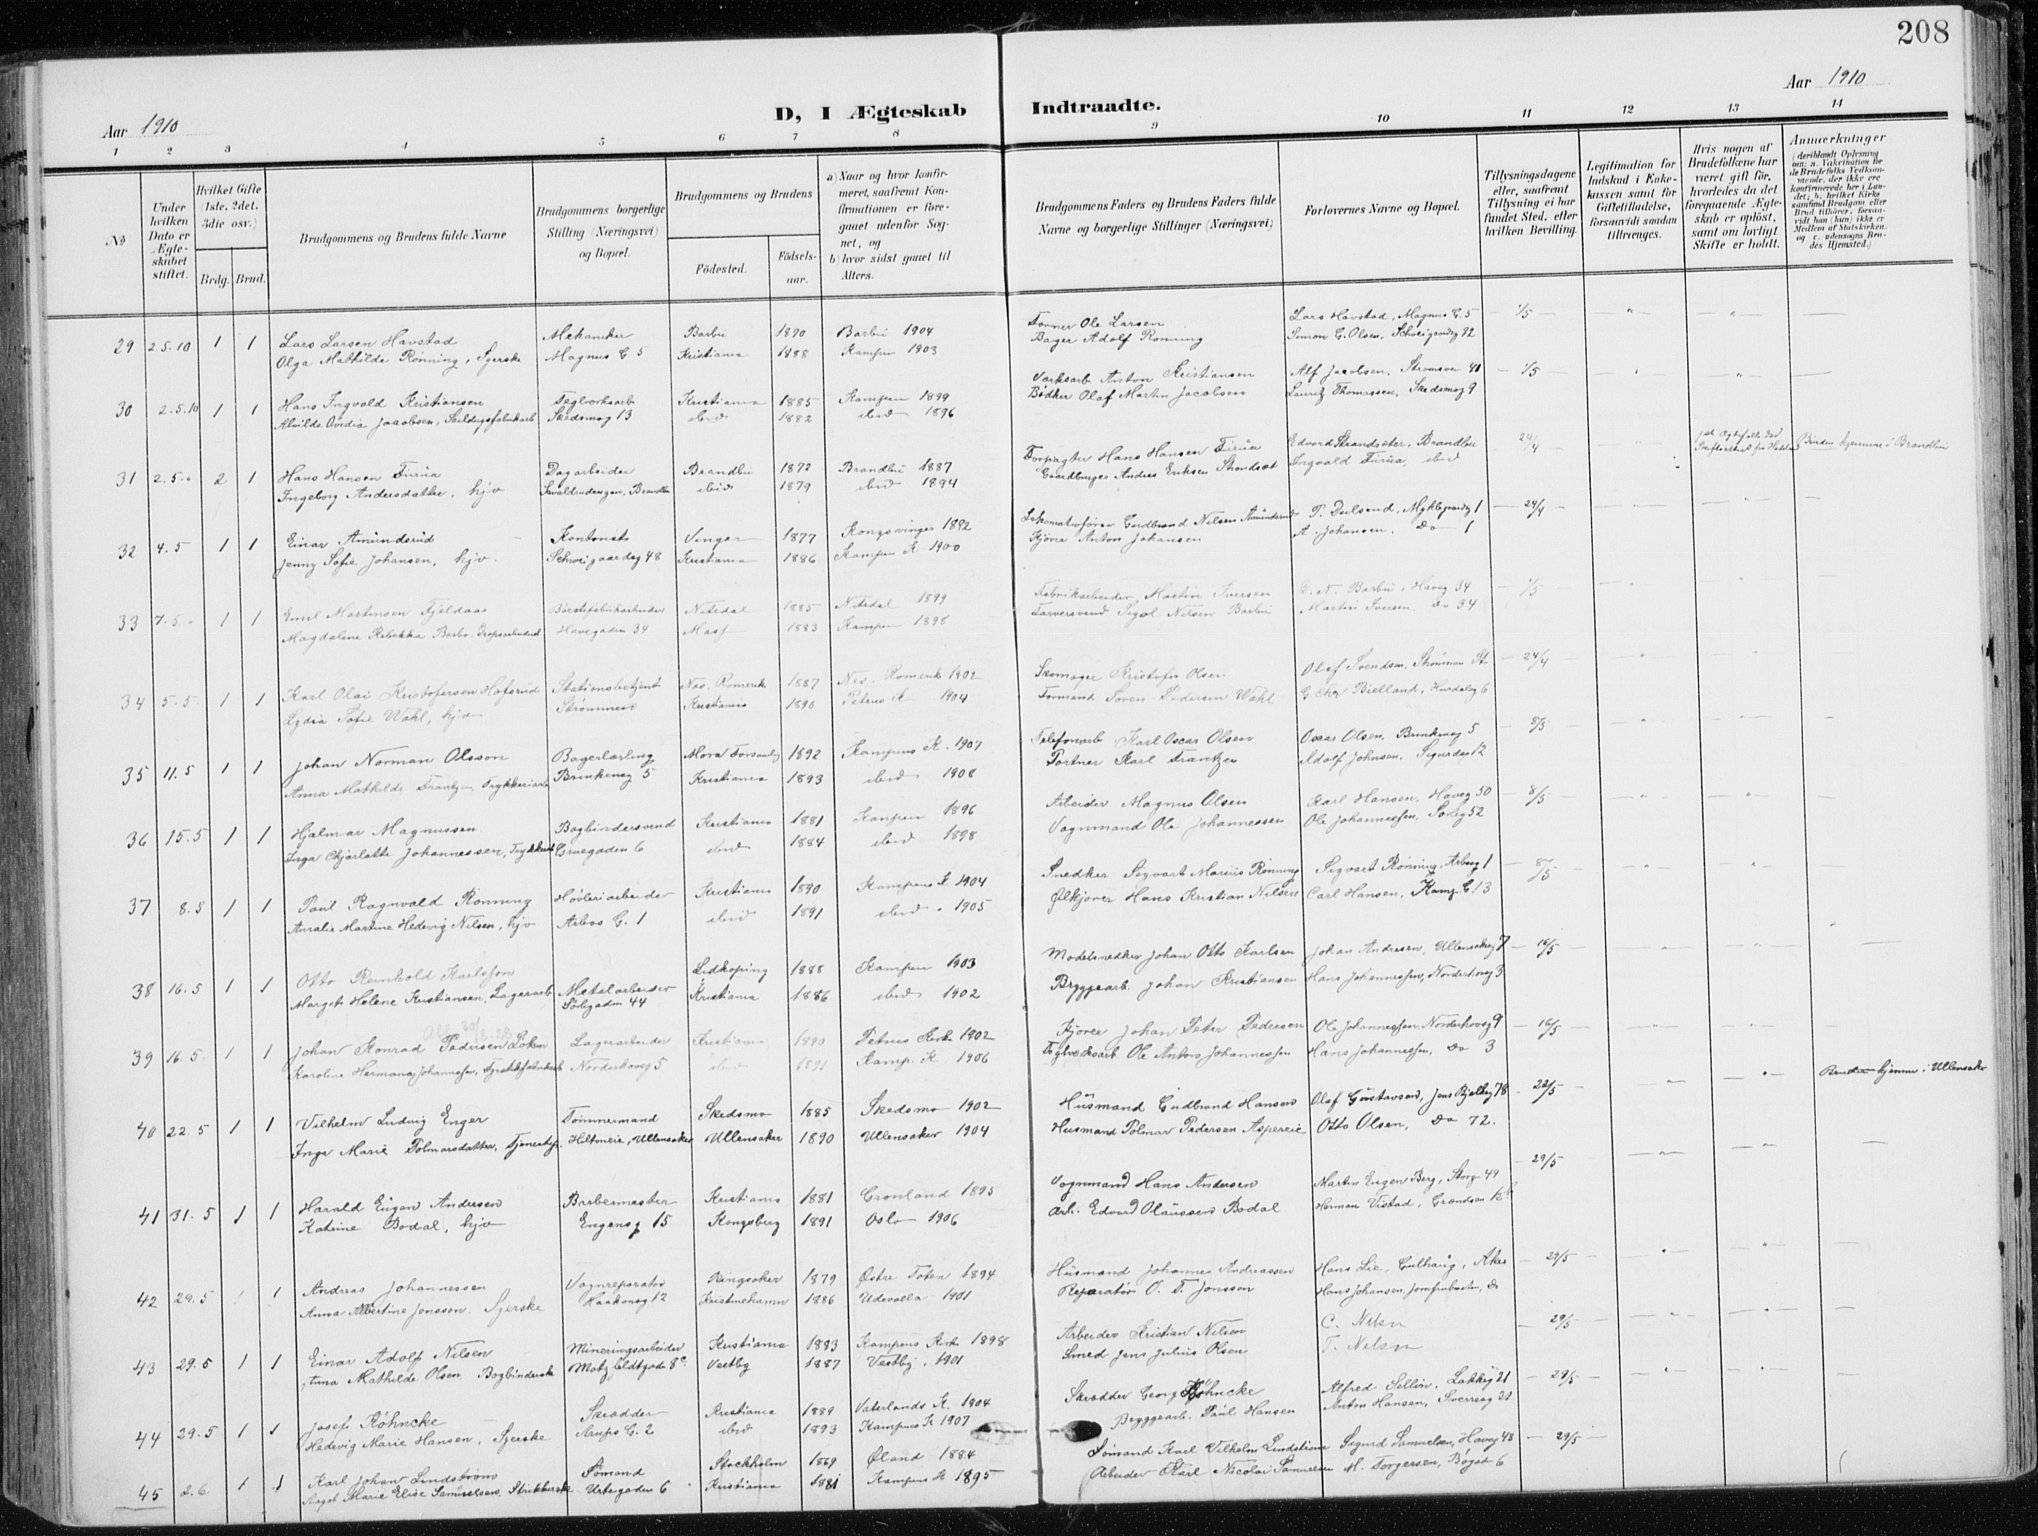 208
Aar 1910
Aar 1910
D, I Ægteskab Indtraadte.
1 2 3 4 5 6 7 8 9 10 11 12 13 14
No
Under hvilken Dato er Ægteskabet stiftet.
Hvilket Gifte (1ste, 2det, 3die osv.)
Brdg. Brud.
Brudgommens og Brudens fulde Navne
Brudgommens borgerlige Stilling (Næringsvei) og Bopæl.
Brudgommens og Brudens
Födested.
Födselsaar.
a) Naar og hvor konfirmeret, saafremt Konfirmationen er foregaaet udenfor Sognet, og
b) hvor sidst gaaet til Alters.
Brudgommens Faders og Brudens Faders fulde Navne og borgerlige Stillinger (Næringsvei)
Forlovernes Navne og Bopæl.
Tillysningsdagene eller, saafremt Tillysning ei har fundet Sted, efter hvilken Bevilling.
Legitimation for Indskud i Enkekassen samt for Giftetilladelse, forsaavidt saadan tiltrænges.
Hvis nogen af Brudefolkene har været gift før, hvorledes da det foregaaende Ægteskab er oplöst, samt om lovligt Skifte er holdt.
Anmærkninger
29 2.5.10 1 1 Lars Larsen Havstad Mekaniker Barbu 1890 Barbu 1904 Former Ole Larsen Lars Havstad, Magnus G. 5 1/5
Olga Mathilde Rønning, Syerske Magnus G 5 Kristiania 1888 Kampen 1903 Bager Adolf Rønning Simon G. Olsen, Schweigaardsg 92
30 2.5.10 1 1 Hans Ingvald Kristiansen Teglverksarb Kristiania 1885 Kampen 1899 Værksarb Anton Kristiansen Alf Jacobsen, Strømsvei 41 1/5
Alvilde Ovidia Jacobsen, Skedsmog 13 ibid 1882 ibid 1896 Bødker Olaf Martin Jacobsen Lauritz Thomassen, Skedsmog 9
31 2.5. 2 1 Hans Hansen Furua Dagarbeider Brandbu 1872 Brandbu 1887 Forpagter Hans Hansen Furua Edvard Strandsæter, Brandbu 24/4
Ingeborg Andersdatter, hjv ibid 1879 ibid 1894 Gaardbruger Andres Eriksen Ingvald Furua, ibid
32 4.5 1 1 Einar Amundsrud Kontorist Vinger 1877 Kongsvinger 1892 Lokomotivfører Gudbrand Nilsen Amundsrud 24/4
Jenny Sofie Johansen, hjv. Schweigaardsg 48 Kristiania 1886 Kampen K 1900 Kjører Anton Johansen A. Johansen, Do 1
33 7.5. 1 1 Emil Martinsen Fjeldaas Børstefabrikarbeider Nitedal 1885 Nitedal 1899 Fabrikarbeider Martin Iversen O. N. Barbu, Haveg 34 1/5
Magdalene Rebekka Barbo Havegaden 34 Moss 1883 Kampen 1898 Farversvend Nilsen Barbu Martin Iversen, Do 34
34 5.5. 1 1 Karl Olai Kristofersen Hofsrud Stationsbetjent Nes. Romerik 1887 Nes. Romerik 1902 Skomager Kristofer Olsen Olaf Svendsen, Strømmen St 24/4
Lydia Sofie Wahl, hjv Strømmen Kristiania 1890 Petrus K 1904 Formand Søren Pedersen Wahl G. Chr Bielland, Hurdalsg 6
35 11.5 1 1 Johan Norman Olsson Bagerlærling Mora 1892 Kampens K. 1907 Telefonarb Karl Oscar Olsen Oscar Olsen, Brinkensg 5 8/5
Anna Mathilde Frantzen, Trykkeriarb Brinkensg 5 Kristiania 1893 ibid 1908 Portner Karl Frantzen Adolf Johnsen, Sigurdsg 12
36 15.5 1 1 Hjalmar Magnussen Bogbindersvend Kristiania 1881 Kampen 1896 Arbeider Magnus Olsen Karl Hansen, Haveg 50 8/5
Inga Charlotte Johannessen, Gruegaden 6 ibid 1884 ibid 1898 Vognmand Ole Johannessen Ole Johannessen, Sørlig 52
37 8.5 1 1 Paul Ragnvald Rønning Høvleriarbeider Kristiania 1890 Kampens K 1904 Snedker Sigvart Marius Rønning Sigvart Rønning, Arbosg 1 8/5
Amalie Martine Hedevig Nilsen, hjv Arbos G. 1 ibid 1891 ibid 1905 Ølkjører Hans Kristian Nilsen Carl Hansen, Kamp. G. 13
38 16.5 1 1 Otto Reinhold Karlsson Metalarbeider Lidkøping 1888 Kampen 1903 Modelsnedker Johan Otto Karlsen Johan Andresen, Ullensakerg 7 16/5
Margit Helene Kristiansen, Lagerarb Sørligaden 44 Kristiania 1886 ibid 1902 Bryggearb. Johan Kristiansen Hans Johannessen, Norderhovg 3
39 16.5. 1 1 Johan Konrad Pedersen Løken Lagerarbeider Kristiania 1890 Petrus Kirke 1902 Kjører Johan Peter Pedersen Ole Johannessen, Norderhovg 9 16/5
Karoline Hermana Johannessen, Norderhovg 5 ibid 1891 Kamp. K 1906 Teglverksarb Ole Anton Johannessen Hans Johannessen, Do 3
40 22.5 1 1 Vilhelm Ludvig Enger Tømmermand Skedsmo 1885 Skedsmo 1902 Husmand Gudbrand Hansen Olaf Gustavsen, Jens Bjelkeg 78 22/5 Brudens hjemme i Ullensaker
Inga Marie Polmarsdatter, Ullensaker Ullensaker 1890 Ullensaker 1904 Husmand Polmar Pedersen Aspereie Otto Olsen, Do 72.
41 31.5 1 1 Harald Eugen Andersen Barbermester Kristiania 1881 Grønland 1895 Vognmand Hans Andersen Martin Eugen Berg, Storg 49 29/5
Katrine Bodal, hjv Engensg 15 Kongsberg 1891 Oslo 1906 Arb. Edvard Olaussen Bodal Herman Vistad, Grændsen
42 29.5 1 Andreas Johannessen Vognreparatør Ringsaker 1879 Østre Toten 1894 Husmand Johannes Andreassen Hans Lie, Gulhaug, Aker 29/5
Anna Albertine Jonssen, Syerske Haakonsg 12 Kristinehamn 1886 Udevalla 1901 Reparatør O. T. Jonsson Hans Johansen, Jomfrubraten, do
43 29.5 1 1 Einar Adolf Nilsen Mineringsarbeider Kristiania 1883 Kampens Kirke 1898 Arbeider Kristian Nilsen C. Nilsen 29/5
Anna Mathilde Olsen, Bogbinderske Motzfeldtgade 8c Vestby 1887 Vestby, 1901 Smed Jens Julius Olsen T. Nilsen
44 29.5 1 1 Josef Røhncke Skrædder Kristiania 1889 Vaterlands K. 1904 Skrædder Georg Røhncke Alfred Sellin, Lakkeg 21 29/5
Hedevig Marie Hansen, Syerske Arups G. 2 ibid 1893 Kampens K 1907 Bryggearb. Paul Hansen Anton Hansen, Sverresg 21
45 2.6 1 1 Karl Johan Lindstrøm Sømand Stockholm 1869 Øland 1884 Sømand Karl Vilhelm Lindstrøm Sigurd Samuelsen, Haveg 48 29/5
Aagot Marie Elise Samuelsen, Strikkerske Urtegaden 6 Kristiania 1881 Kampens K 1895 Arbeider Karl Nicolai Samuelsen M. Torgersen, Bøgat 6